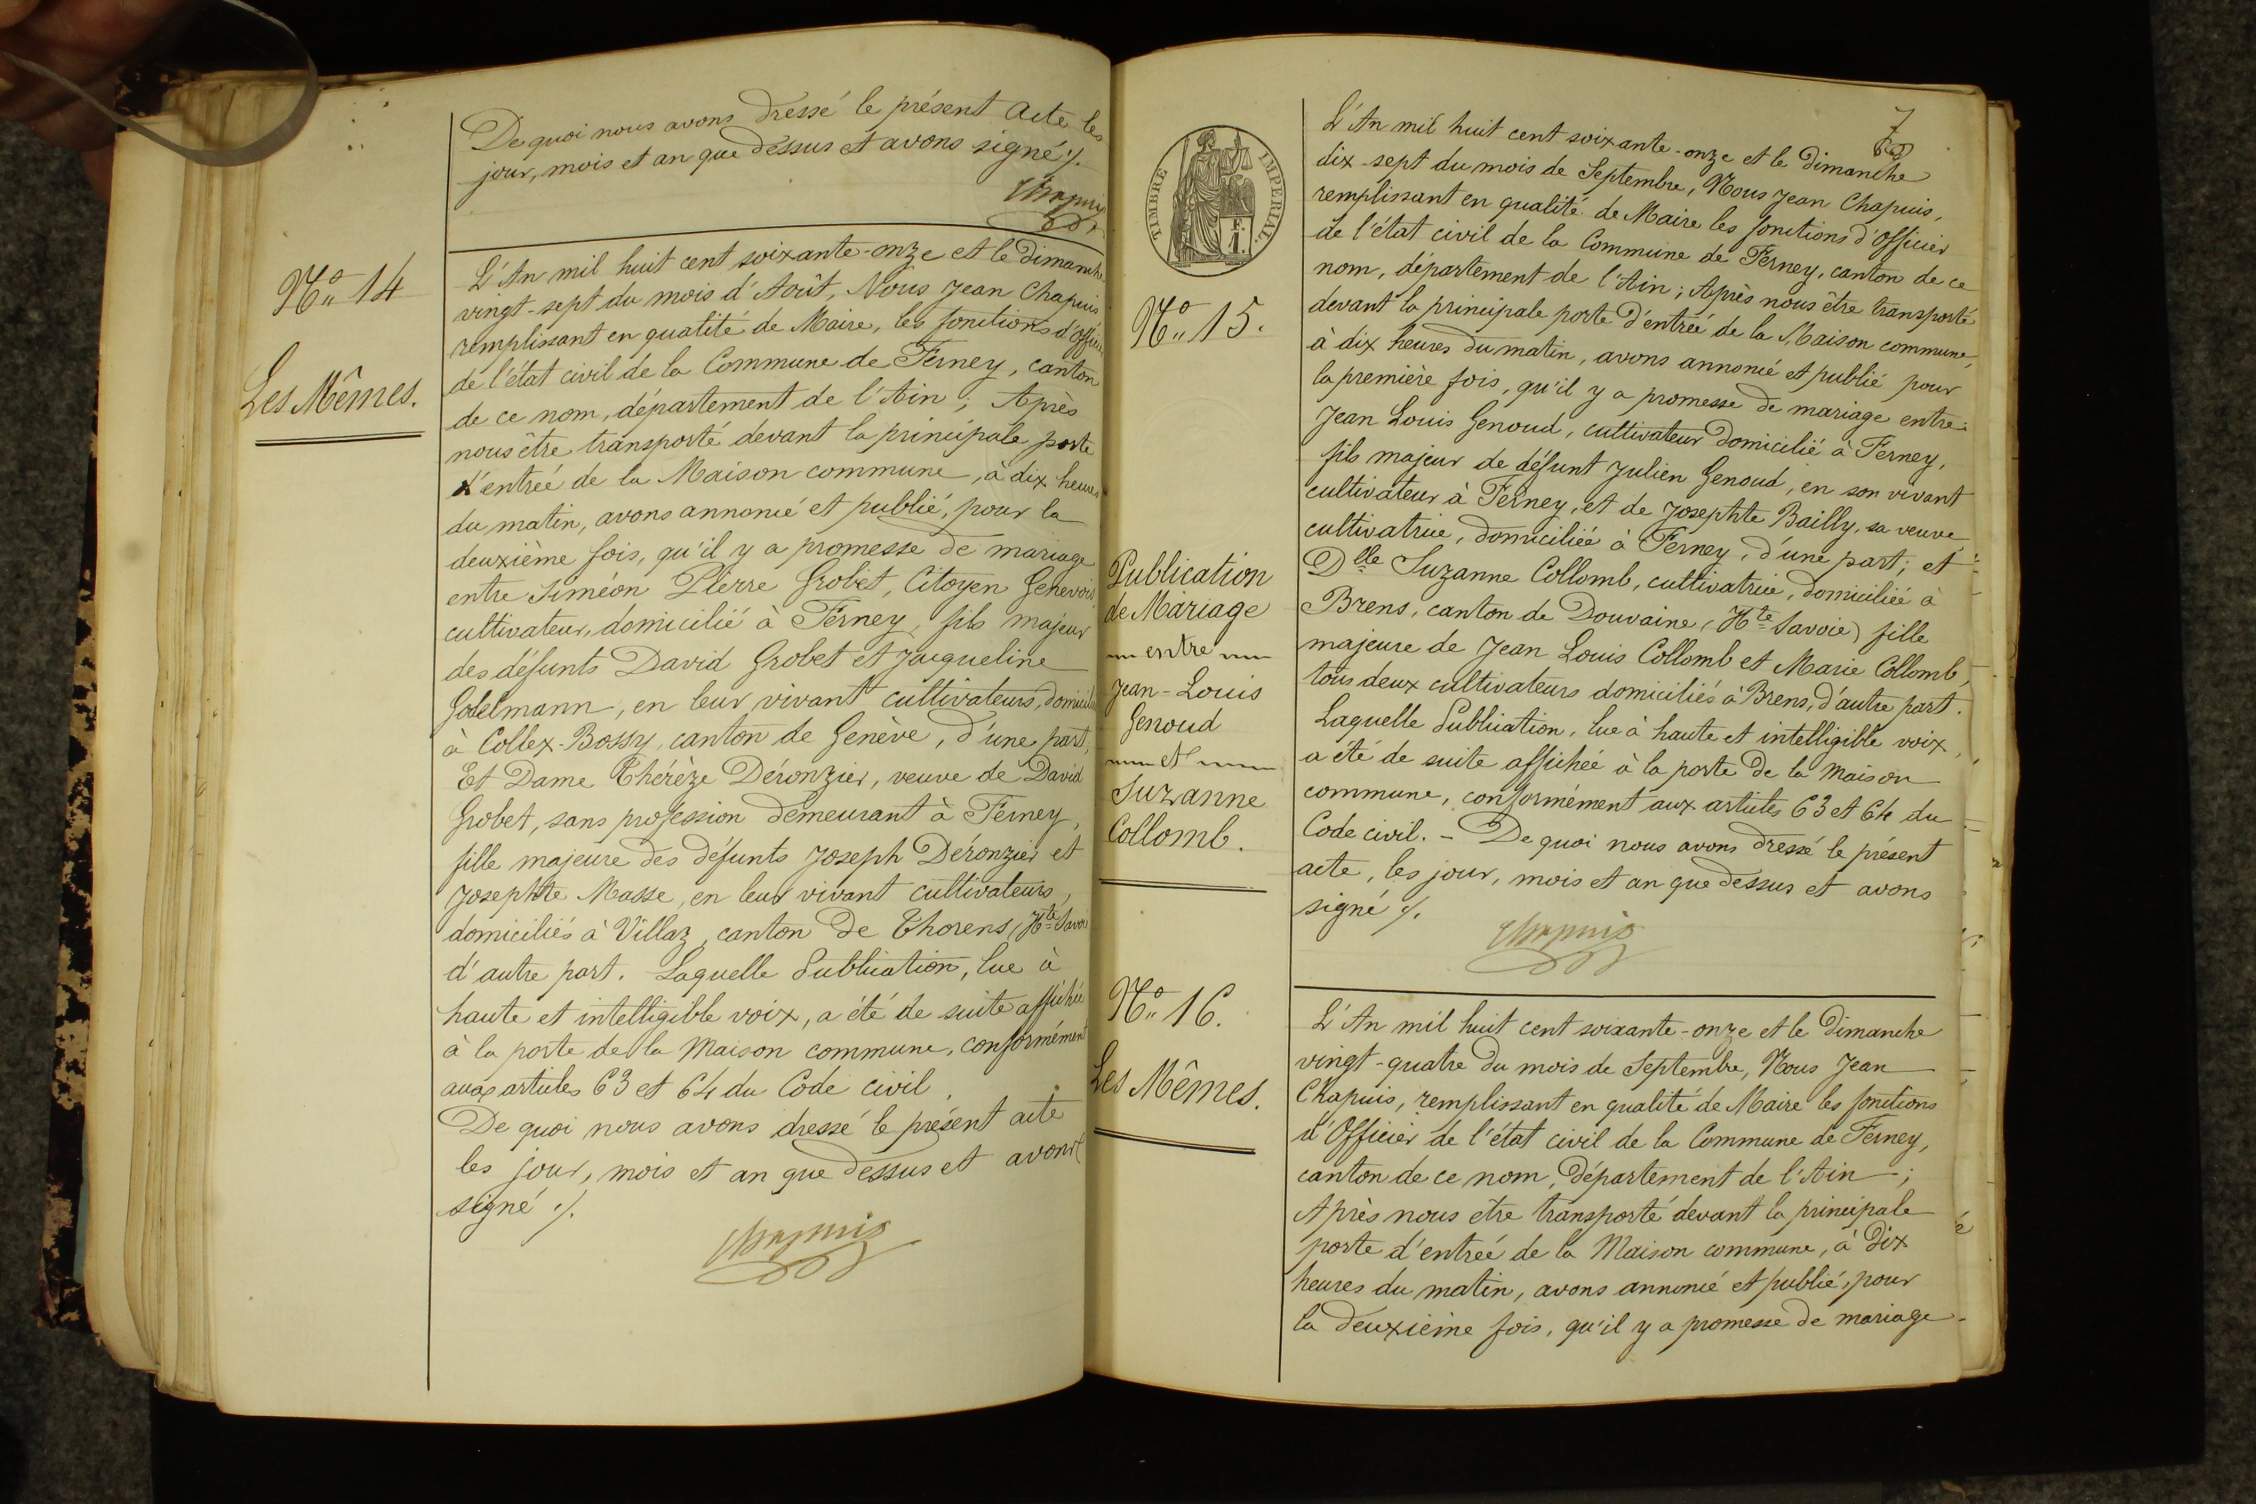 De quoi nous avons dressé le présent acte les
jour, mois et an que dessus et avons signé ./.
Chapuis
N° 14
Les Mêmes.
L'An mil huit cent soixante-onze et le Dimanche
vingt-sept du mois d'Août, Nous Jean Chapuis
remplissant en qualité de Maire, les fonctions d'Officier
de l'état civil de la Commune de Ferney, canton
de ce nom, département de l'Ain ; Après
nous être transporté devant la principale porte
d'entrée de la Maison commune, à dix heures
du matin, avons annoncé et publié, pour la
deuxième fois, qu'il y a promesse de mariage
entre Siméon Pierre Grobet, Citoyen Genevois,
cultivateur, domicilié à Ferney, fils majeur
des défunts David Grobet et Jacqueline
Gobelmann, en leur vivant cultivateurs, domiciliés
à Collex-Bossy, canton de Genève, d'une part,
Et Dame Thérèze Déronzier, veuve de David
Grobet, sans profession demeurant à Ferney,
fille majeure des défunts Joseph Déronzier et
Josephte Masse, en leur vivant cultivateurs,
domiciliés à Villaz, canton de Thorens (Hte Savoie
d'autre part. Laquelle Publication, lue à
haute et intelligible voix, a été de suite affichée
à la porte de la Maison commune, conformément
aux articles 63 et 64 du Code civil.
De quoi nous avons dressé le présent acte
les jour, mois et an que dessus et avons
signé ./.
Chapuis
7
TIMBRE IMPERIAL.
N° 15.
Publication
de Mariage
entre
Jean-Louis
Genoud
et
Suzanne
Collomb.
L'An mil huit cent soixante-onze et le Dimanche
dix-sept du mois de Septembre, Nous Jean Chapuis,
remplissant en qualité de Maire les fonctions d'Officier
de l'état civil de la Commune de Ferney, canton de ce
nom, département de l'Ain ; Après nous être transporté
devant la principale porte d'entrée de la Maison commune,
à dix heures du matin, avons annoncé et publié pour
la première fois, qu'il y a promesse de mariage entre
Jean Louis Genoud, cultivateur domicilié à Ferney,
fils majeur de défunt Julien Genoud, en son vivant
cultivateur à Ferney, et de Josephte Bailly, sa veuve,
cultivatrice, domiciliée à Ferney, d'une part ; et
Dlle Suzanne Collomb, cultivatrice, domiciliée à
Brens, canton de Douvaine, (Hte Savoie) fille
majeure de Jean Louis Collomb et Marie Collomb,
tous deux cultivateurs domiciliés à Brens, d'autre part.
Laquelle Publication, lue à haute et intelligible voix,
a été de suite affichée à la porte de la Maison
commune, conformément aux articles 63 et 64 du
Code civil. - De quoi nous avons dressé le présent
acte, les jour, mois et an que dessus et avons
signé ./.
Chapuis
N° 16.
Les Mêmes.
L'An mil huit cent soixante-onze et le Dimanche
vingt-quatre du mois de Septembre, Nous Jean
Chapuis, remplissant en qualité de Maire les fonctions
d'Officier de l'état civil de la Commune de Ferney,
canton de ce nom, Département de l'Ain ;
Après nous être transporté devant la principale
porte d'entrée de la Maison commune, à Dix
heures du matin, avons annoncé et publié, pour
la deuxième fois, qu'il y a promesse de mariage